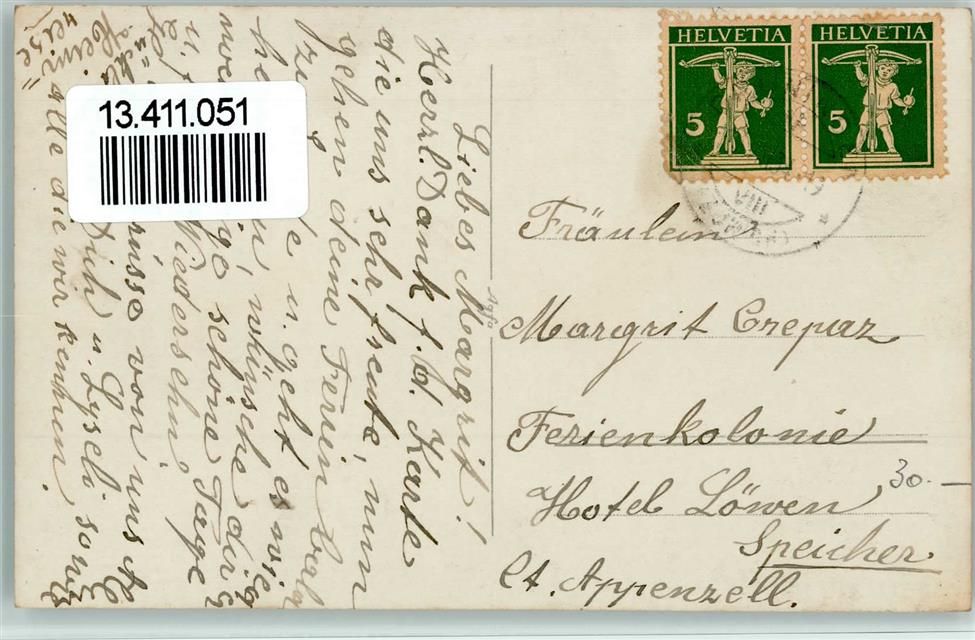 HELVETIA HELVETIA
5 5
VIII
13.411.051
Fräulein
Margrit Crepaz
Ferienkolonie
Hotel Löwen
Speicher
Ct. Appenzell.
30.-
Agfa
Liebes Margrit!
Herzl. Dank f. d. Karte
die uns sehr freute, nun
gehen deine Ferien bald
zu u. geht es
wünsche dir
schöne Tage
u. Wiedersehn
Grüsse von uns
Dich u. Lyseli sowie
Alle die wir kennen.